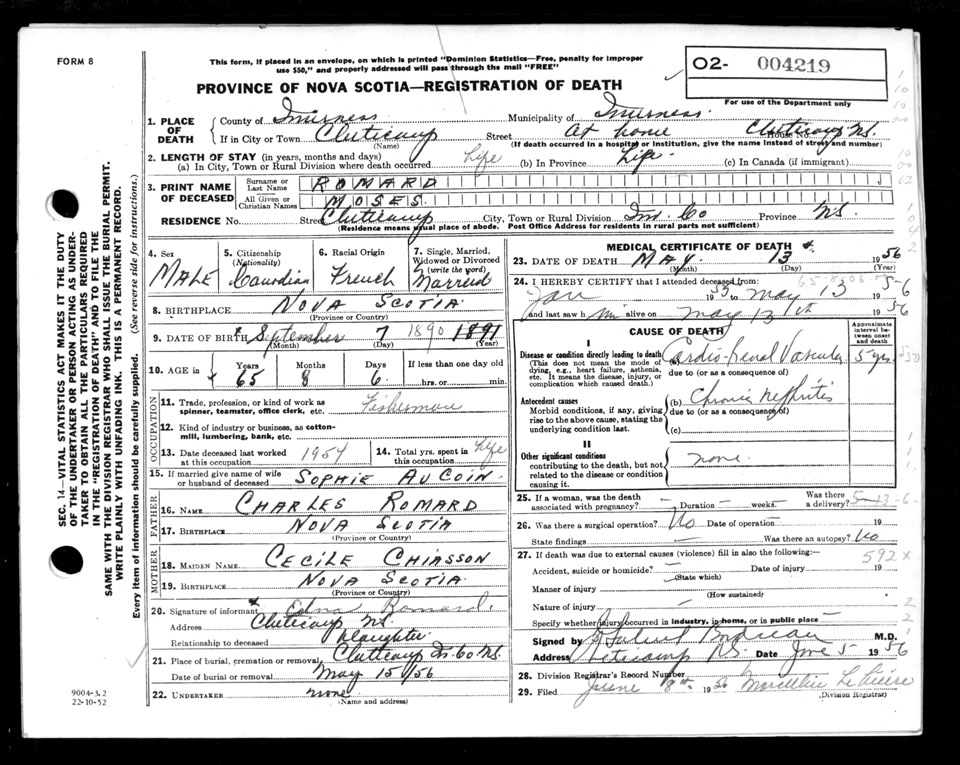 FORM 8
This form, if placed in an envelope, on which is printed "Dominion Statistics—Free, penalty for improper
use $50," and properly addressed will pass through the mail "FREE"
O2- 004219
For use of the Department only
PROVINCE OF NOVA SCOTIA—REGISTRATION OF DEATH
1. PLACE OF DEATH County of Inverness Municipality of Inverness
If in City or Town Cheticamp Street At home House No. Cheticamp N.S.
(Name) (If death occurred in a hospital or institution, give the name instead of street and number)
2. LENGTH OF STAY (in years, months and days)
(a) In City, Town or Rural Division where death occurred Life (b) In Province Life. (c) In Canada (if immigrant)
3. PRINT NAME OF DECEASED Surname or Last Name ROMARD
All Given or Christian Names MOSES
RESIDENCE No. Street Cheticamp City, Town or Rural Division Inv. Co Province N.S.
(Residence means usual place of abode. Post Office Address for residents in rural parts not sufficient)
4. Sex MALE
5. Citizenship (Nationality) Canadian
6. Racial Origin French
7. Single, Married, Widowed or Divorced (write the word) Married
8. BIRTHPLACE NOVA SCOTIA
(Province or Country)
9. DATE OF BIRTH September 7 1890 1891
(Month) (Day) (Year)
10. AGE in Years 65 Months 8 Days 6 If less than one day old
hrs. or min.
OCCUPATION
11. Trade, profession, or kind of work as
spinner, teamster, office clerk, etc. Fisherman
12. Kind of industry or business, as cotton-
mill, lumbering, bank, etc.
13. Date deceased last worked at this occupation 1954 14. Total yrs. spent in this occupation Life
15. If married give name of wife
or husband of deceased SOPHIE AUCOIN
FATHER
16. NAME CHARLES ROMARD
17. BIRTHPLACE NOVA SCOTIA
(Province or Country)
MOTHER
18. MAIDEN NAME CECILE CHIASSON
19. BIRTHPLACE NOVA SCOTIA
(Province or Country)
20. Signature of informant Edna Romard
Address Cheticamp N.S.
Relationship to deceased Daughter
21. Place of burial, cremation or removal Cheticamp In. Co N.S.
Date of burial or removal May 15/56
22. UNDERTAKER none
(Name and address)
MEDICAL CERTIFICATE OF DEATH
23. DATE OF DEATH MAY 13 1956
(Month) (Day) (Year)
24. I HEREBY CERTIFY that I attended deceased from:
Jan 1955 to May 13 1956
and last saw him alive on May 13th 1956
CAUSE OF DEATH
Approximate interval between onset and death
I
Disease or condition directly leading to death
(This does not mean the mode of
dying, e.g., heart failure, asthenia,
etc. It means the disease, injury, or
complication which caused death.)
Cardio-Renal Vascular 5 yrs.
due to (or as a consequence of)
Antecedent causes
Morbid conditions, if any, giving
rise to the above cause, stating the
underlying condition last.
(b) Chronic Nephritis
due to (or as a consequence of)
(c)
II
Other significant conditions
contributing to the death, but not
related to the disease or condition
causing it.
none.
25. If a woman, was the death
associated with pregnancy? Duration weeks. Was there a delivery?
26. Was there a surgical operation? No Date of operation 19
State findings Was there an autopsy? No
27. If death was due to external causes (violence) fill in also the following:— 592x
Accident, suicide or homicide? Date of injury 19
(State which)
Manner of injury
(How sustained)
Nature of injury
Specify whether injury occurred in industry, in home, or in public place
Signed by M.D.
Address Cheticamp N.S. Date June 5 1956
28. Division Registrar's Record Number
29. Filed June 8th 1956
(Division Registrar)
SEC. 14—VITAL STATISTICS ACT MAKES IT THE DUTY
OF THE UNDERTAKER OR PERSON ACTING AS UNDER-
TAKER TO OBTAIN ALL THE PARTICULARS REQUIRED
IN THE "REGISTRATION OF DEATH" AND TO FILE THE
SAME WITH THE DIVISION REGISTRAR WHO SHALL ISSUE THE BURIAL PERMIT.
WRITE PLAINLY WITH UNFADING INK. THIS IS A PERMANENT RECORD.
Every item of information should be carefully supplied. (See reverse side for instructions.)
9004-3.2
22-10-52